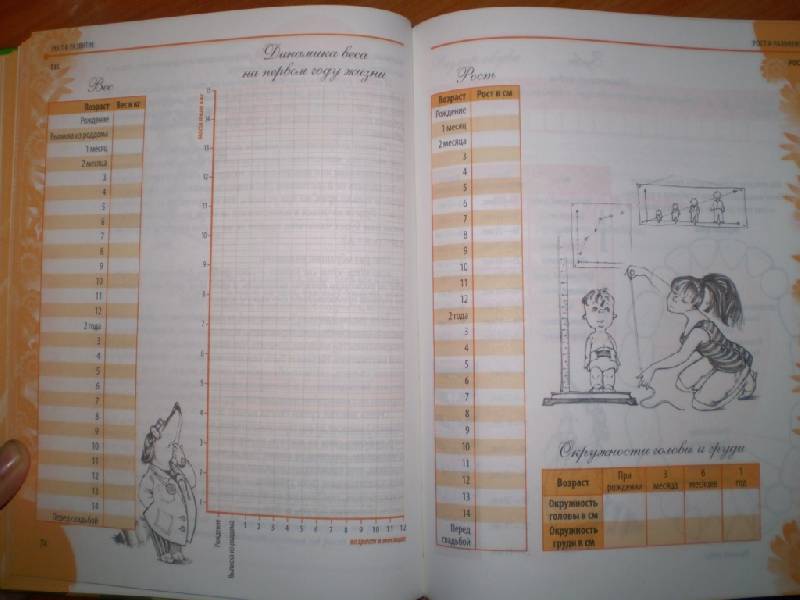 РОСТ И РАЗВИТИЕ
Вес
Возраст Вес в кг
Рождение
Выписка из роддома
1 месяц
2 месяца
3
4
5
6
7
8
9
10
11
12
2 года
3
4
5
6
7
8
9
10
11
12
13
14
Перед свадьбой
74
Динамика веса
на первом году жизни
15
14
13
12
11
10
9
8
7
6
5
4
3
2
1
Рождение
Выписка из роддома
1 2 3 4 5 6 7 8 9 10 11 12
возраст в месяцах
РОСТ И РАЗВИТИЕ
Рост
Возраст Рост в см
Рождение
1 месяц
2 месяца
3
4
5
6
7
8
9
10
11
12
2 года
3
4
5
6
7
8
9
10
11
12
13
14
Перед
свадьбой
Окружности головы и груди
Возраст При рождении 3 месяца 6 месяцев 1 год
Окружность
головы в см
Окружность
груди в см